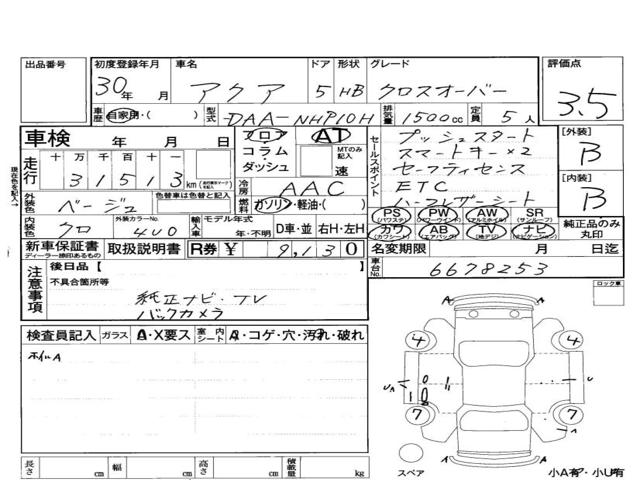 出品番号 初度登録年月 車名 ドア 形状 グレード 評価点
30年 月 アクア 5 HB クロスオーバー 3.5
車歴 自家用・( ) 型式 DAA-NHP10H 排気量 1500cc 定員 5人
車検 年 月 日 フロア コラム・ダッシュ AT MTのみ記入 速
セールスポイント プッシュスタート
スマートキー×2
セーフティセンス
ETC
ハーフレザーシート
[外装] B
[内装] B
現在色を記入→
走行 十 万 千 百 十 一
3 1 5 1 3 km
冷房 AAC
外装色 ベージュ 色替車は色替と記入 燃料 ガソリン・軽油・( )
PS (パワステ) PW (パワーウインド) AW (アルミホイル) SR (サンルーフ)
カワ (カワシート) AB (エアバッグ) TV (地デジ) ナビ (ナビゲーション)
純正品のみ丸印
内装色 クロ 外装カラーNo. 4V0 輸入車 モデル年式 年・不明 D車・並 右H・左H
新車保証書 ディーラー捺印あるもの 取扱説明書 R券 ¥ 9,130
名変期限 月 日迄
車台No. 6678253
注意事項 後日品【 】
不具合箇所等
純正ナビ・TV
バックカメラ
ロック車
検査員記入 ガラス A・X要ス 室内シート A・コゲ・穴・汚れ・破れ
ホイルA
A
4 4
U A U
7 7
A
スペア
小A有 ・小U有
長さ cm 幅 cm 高さ cm 積載量 kg